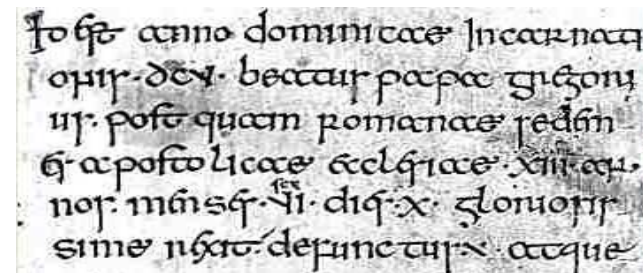 Io est anno dominicae Incarnati
onis · dcv · beatus papa gregori
us · post quam romanae sedem
et apostolicae ecclesiae · xiii · an·
nos · menses · vi · dies · x · gloriosis
sime rexit · defunctus · atque